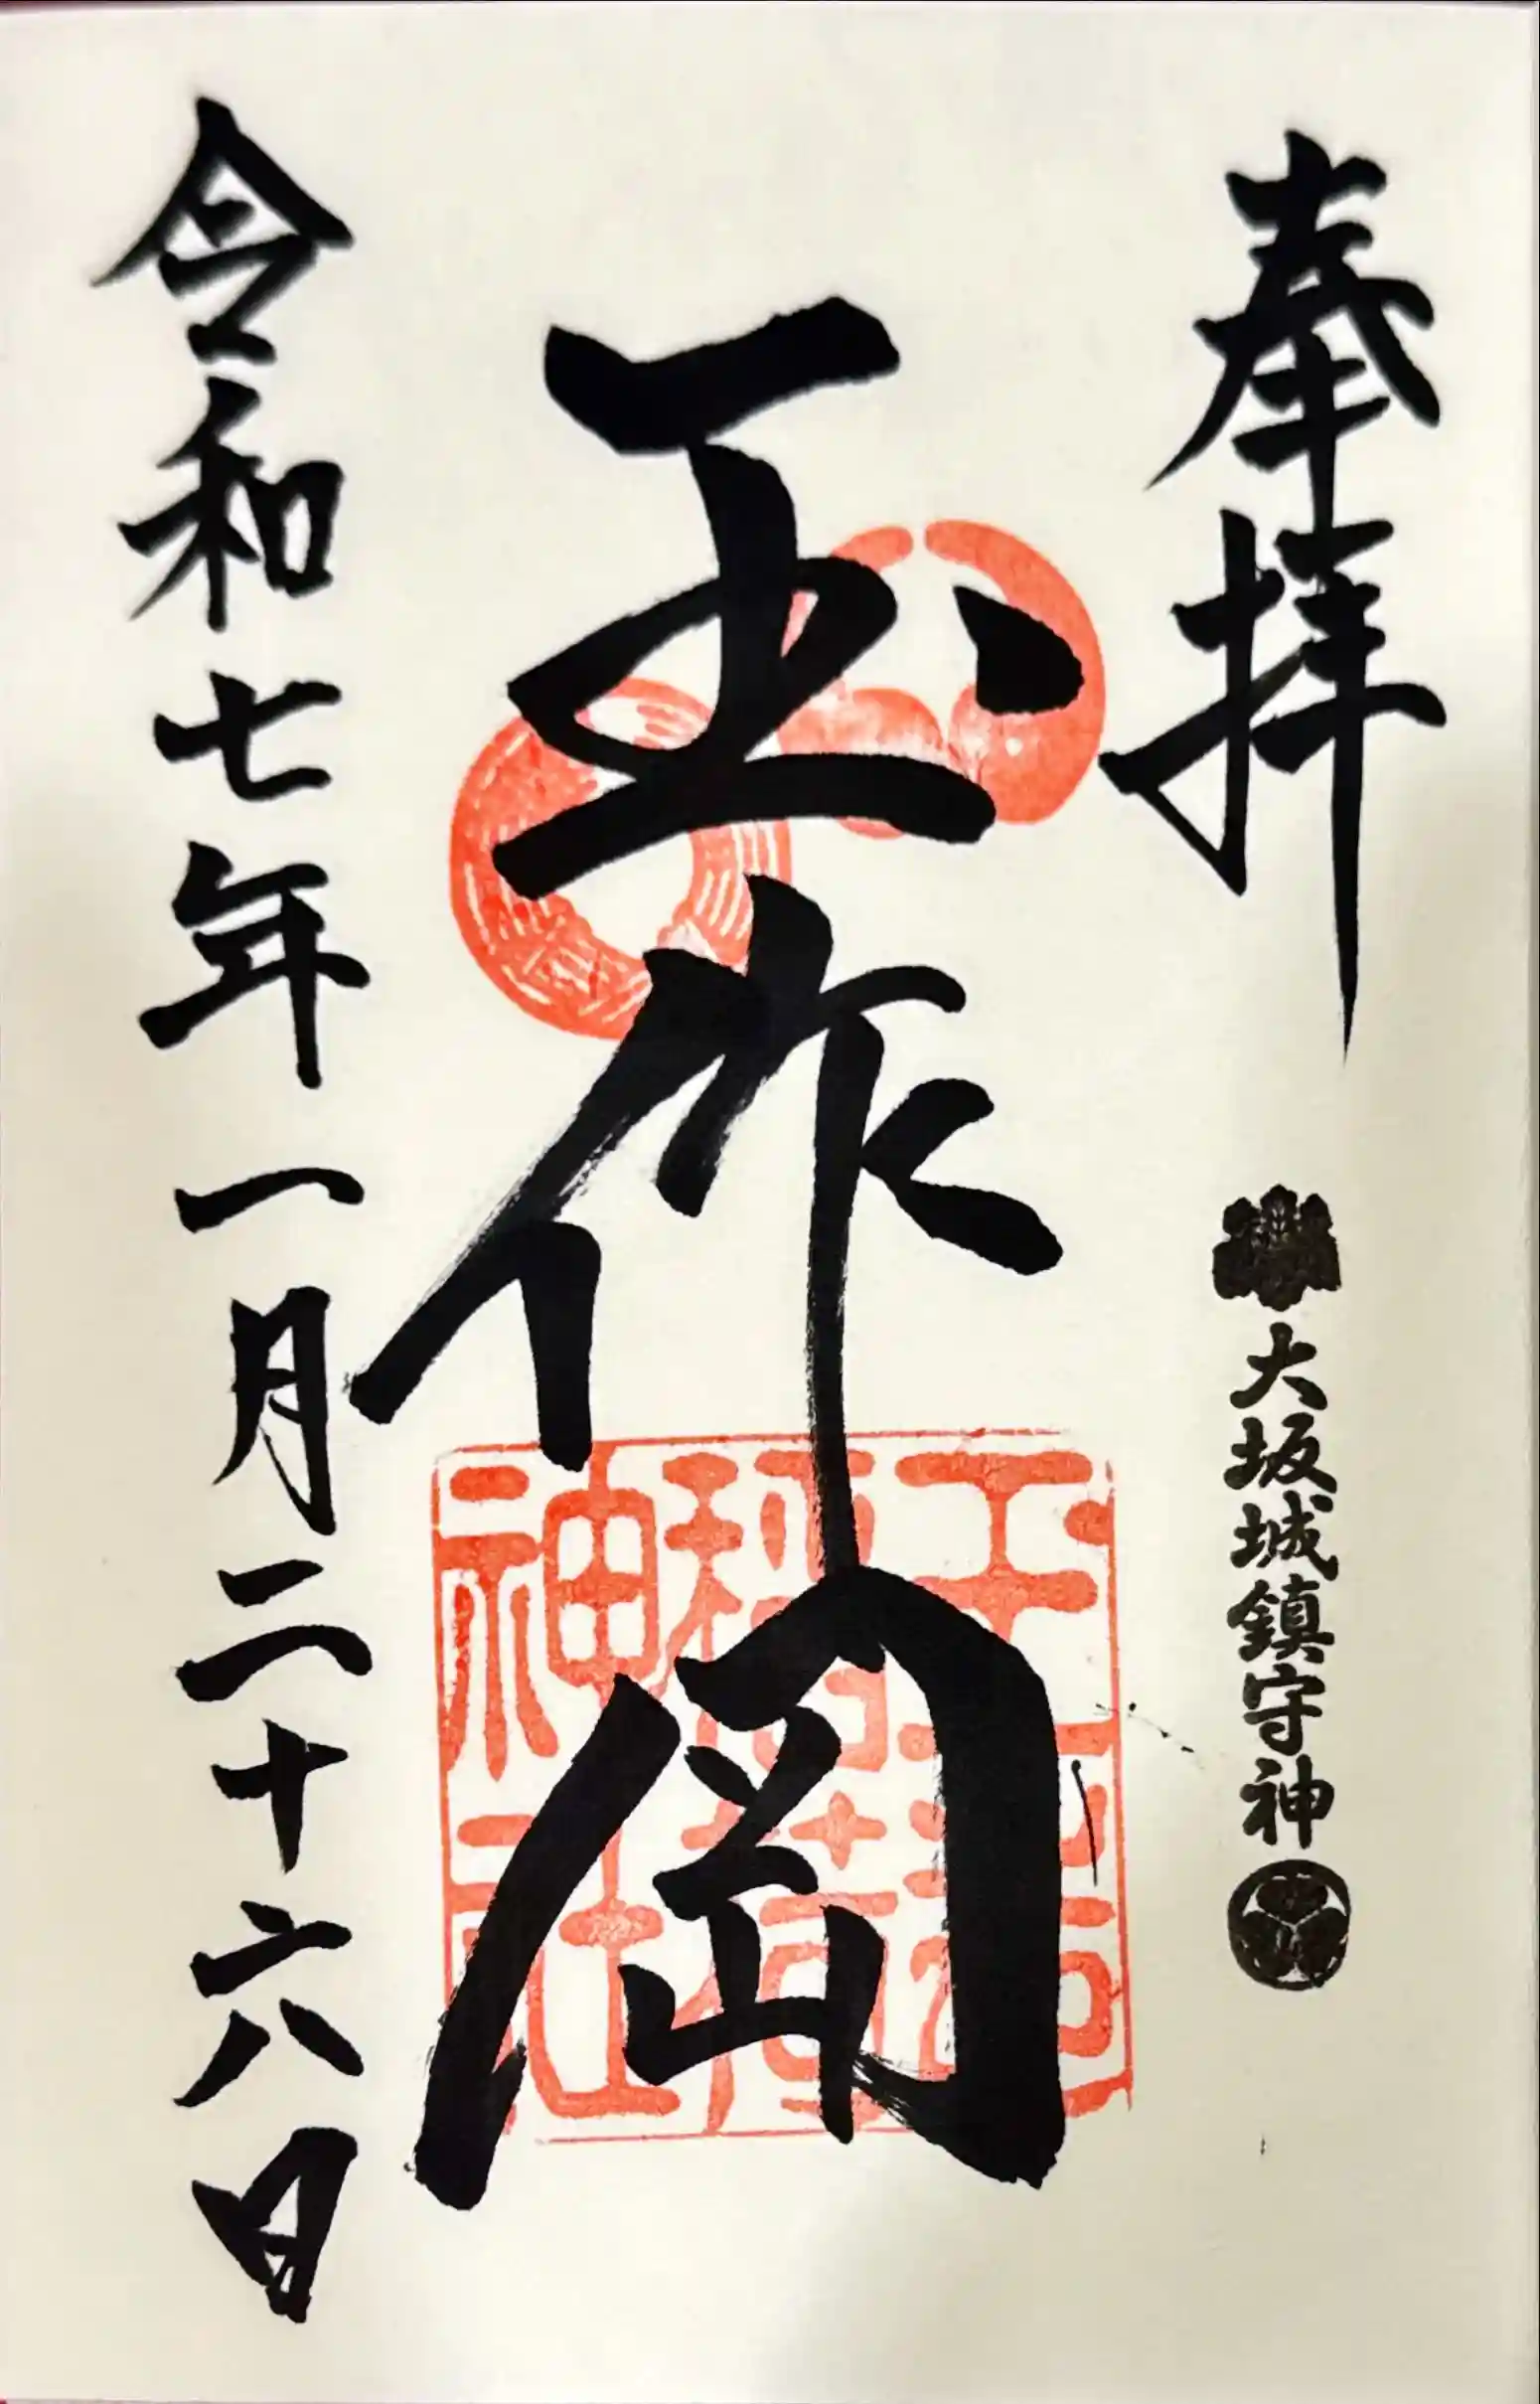 奉拝
大坂城鎮守神
玉作岡
玉造
稲荷
神社
令和七年一月二十六日